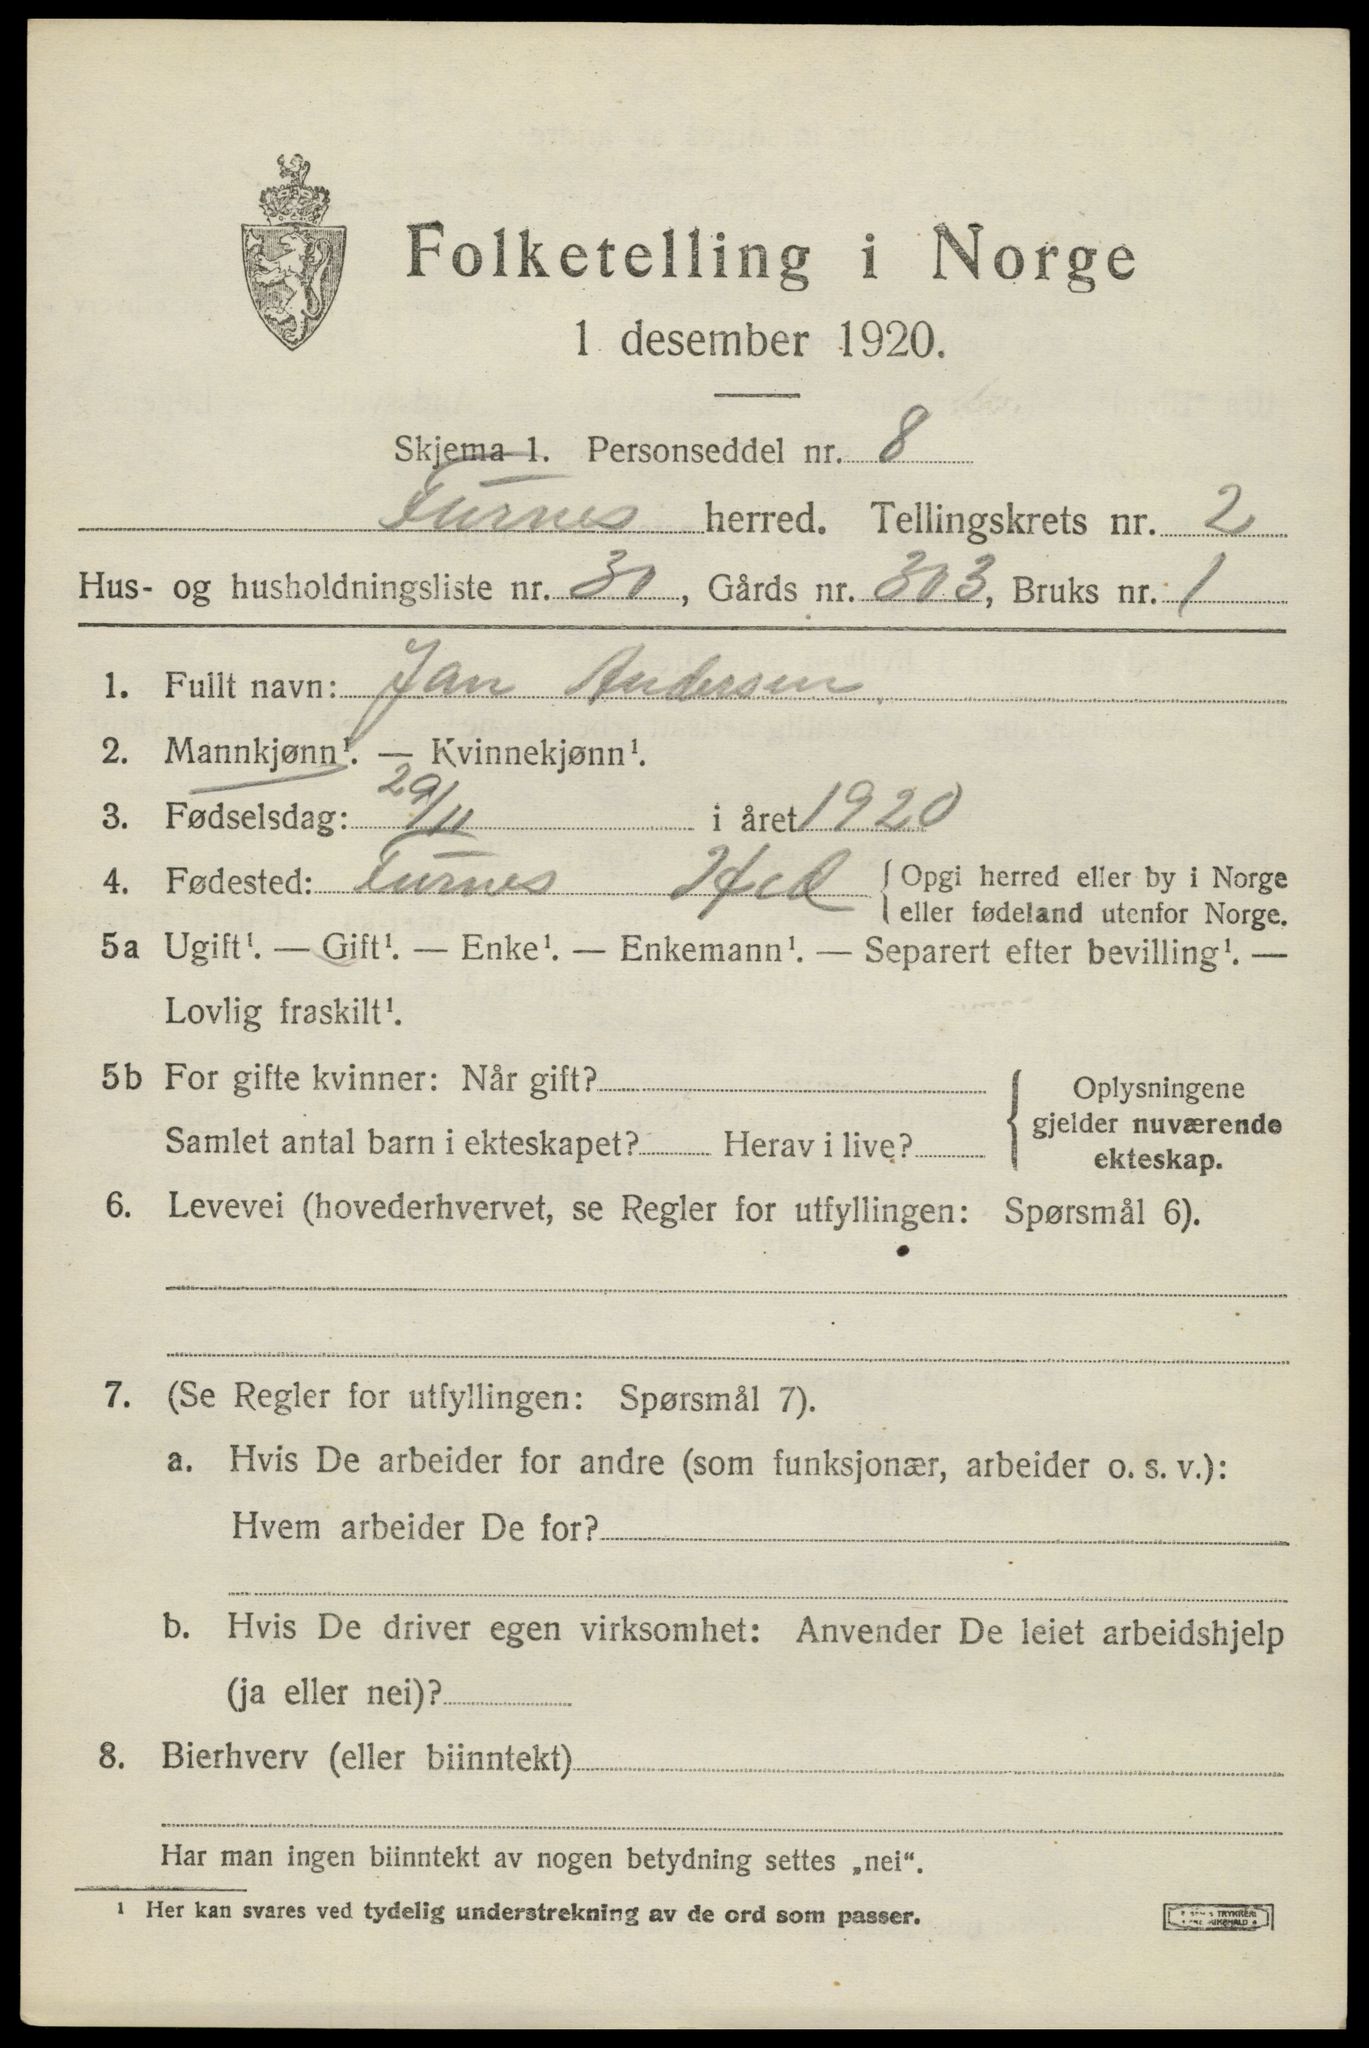 Folketelling i Norge
1 desember 1920.
Skjema 1. Personseddel nr. 8
Furnes herred. Tellingskrets nr. 2
Hus- og husholdningsliste nr. 30, Gårds nr. 303, Bruks nr. 1
1. Fullt navn: Jan Andersen
2. Mannkjønn¹. — Kvinnekjønn¹.
3. Fødselsdag: 29/11 i året 1920
4. Fødested: Furnes Hed { Opgi herred eller by i Norge
eller fødeland utenfor Norge.
5a Ugift¹. — Gift¹. — Enke¹. — Enkemann¹. — Separert efter bevilling¹. —
Lovlig fraskilt¹.
5b For gifte kvinner: Når gift?
Samlet antal barn i ekteskapet? Herav i live?
{ Oplysningene
gjelder nuværende
ekteskap.
6. Levevei (hovederhvervet, se Regler for utfyllingen: Spørsmål 6).
7. (Se Regler for utfyllingen: Spørsmål 7).
a. Hvis De arbeider for andre (som funksjonær, arbeider o. s. v.):
Hvem arbeider De for?
b. Hvis De driver egen virksomhet: Anvender De leiet arbeidshjelp
(ja eller nei)?
8. Bierhverv (eller biinntekt)
Har man ingen biinntekt av nogen betydning settes „nei“.
¹ Her kan svares ved tydelig understrekning av de ord som passer.